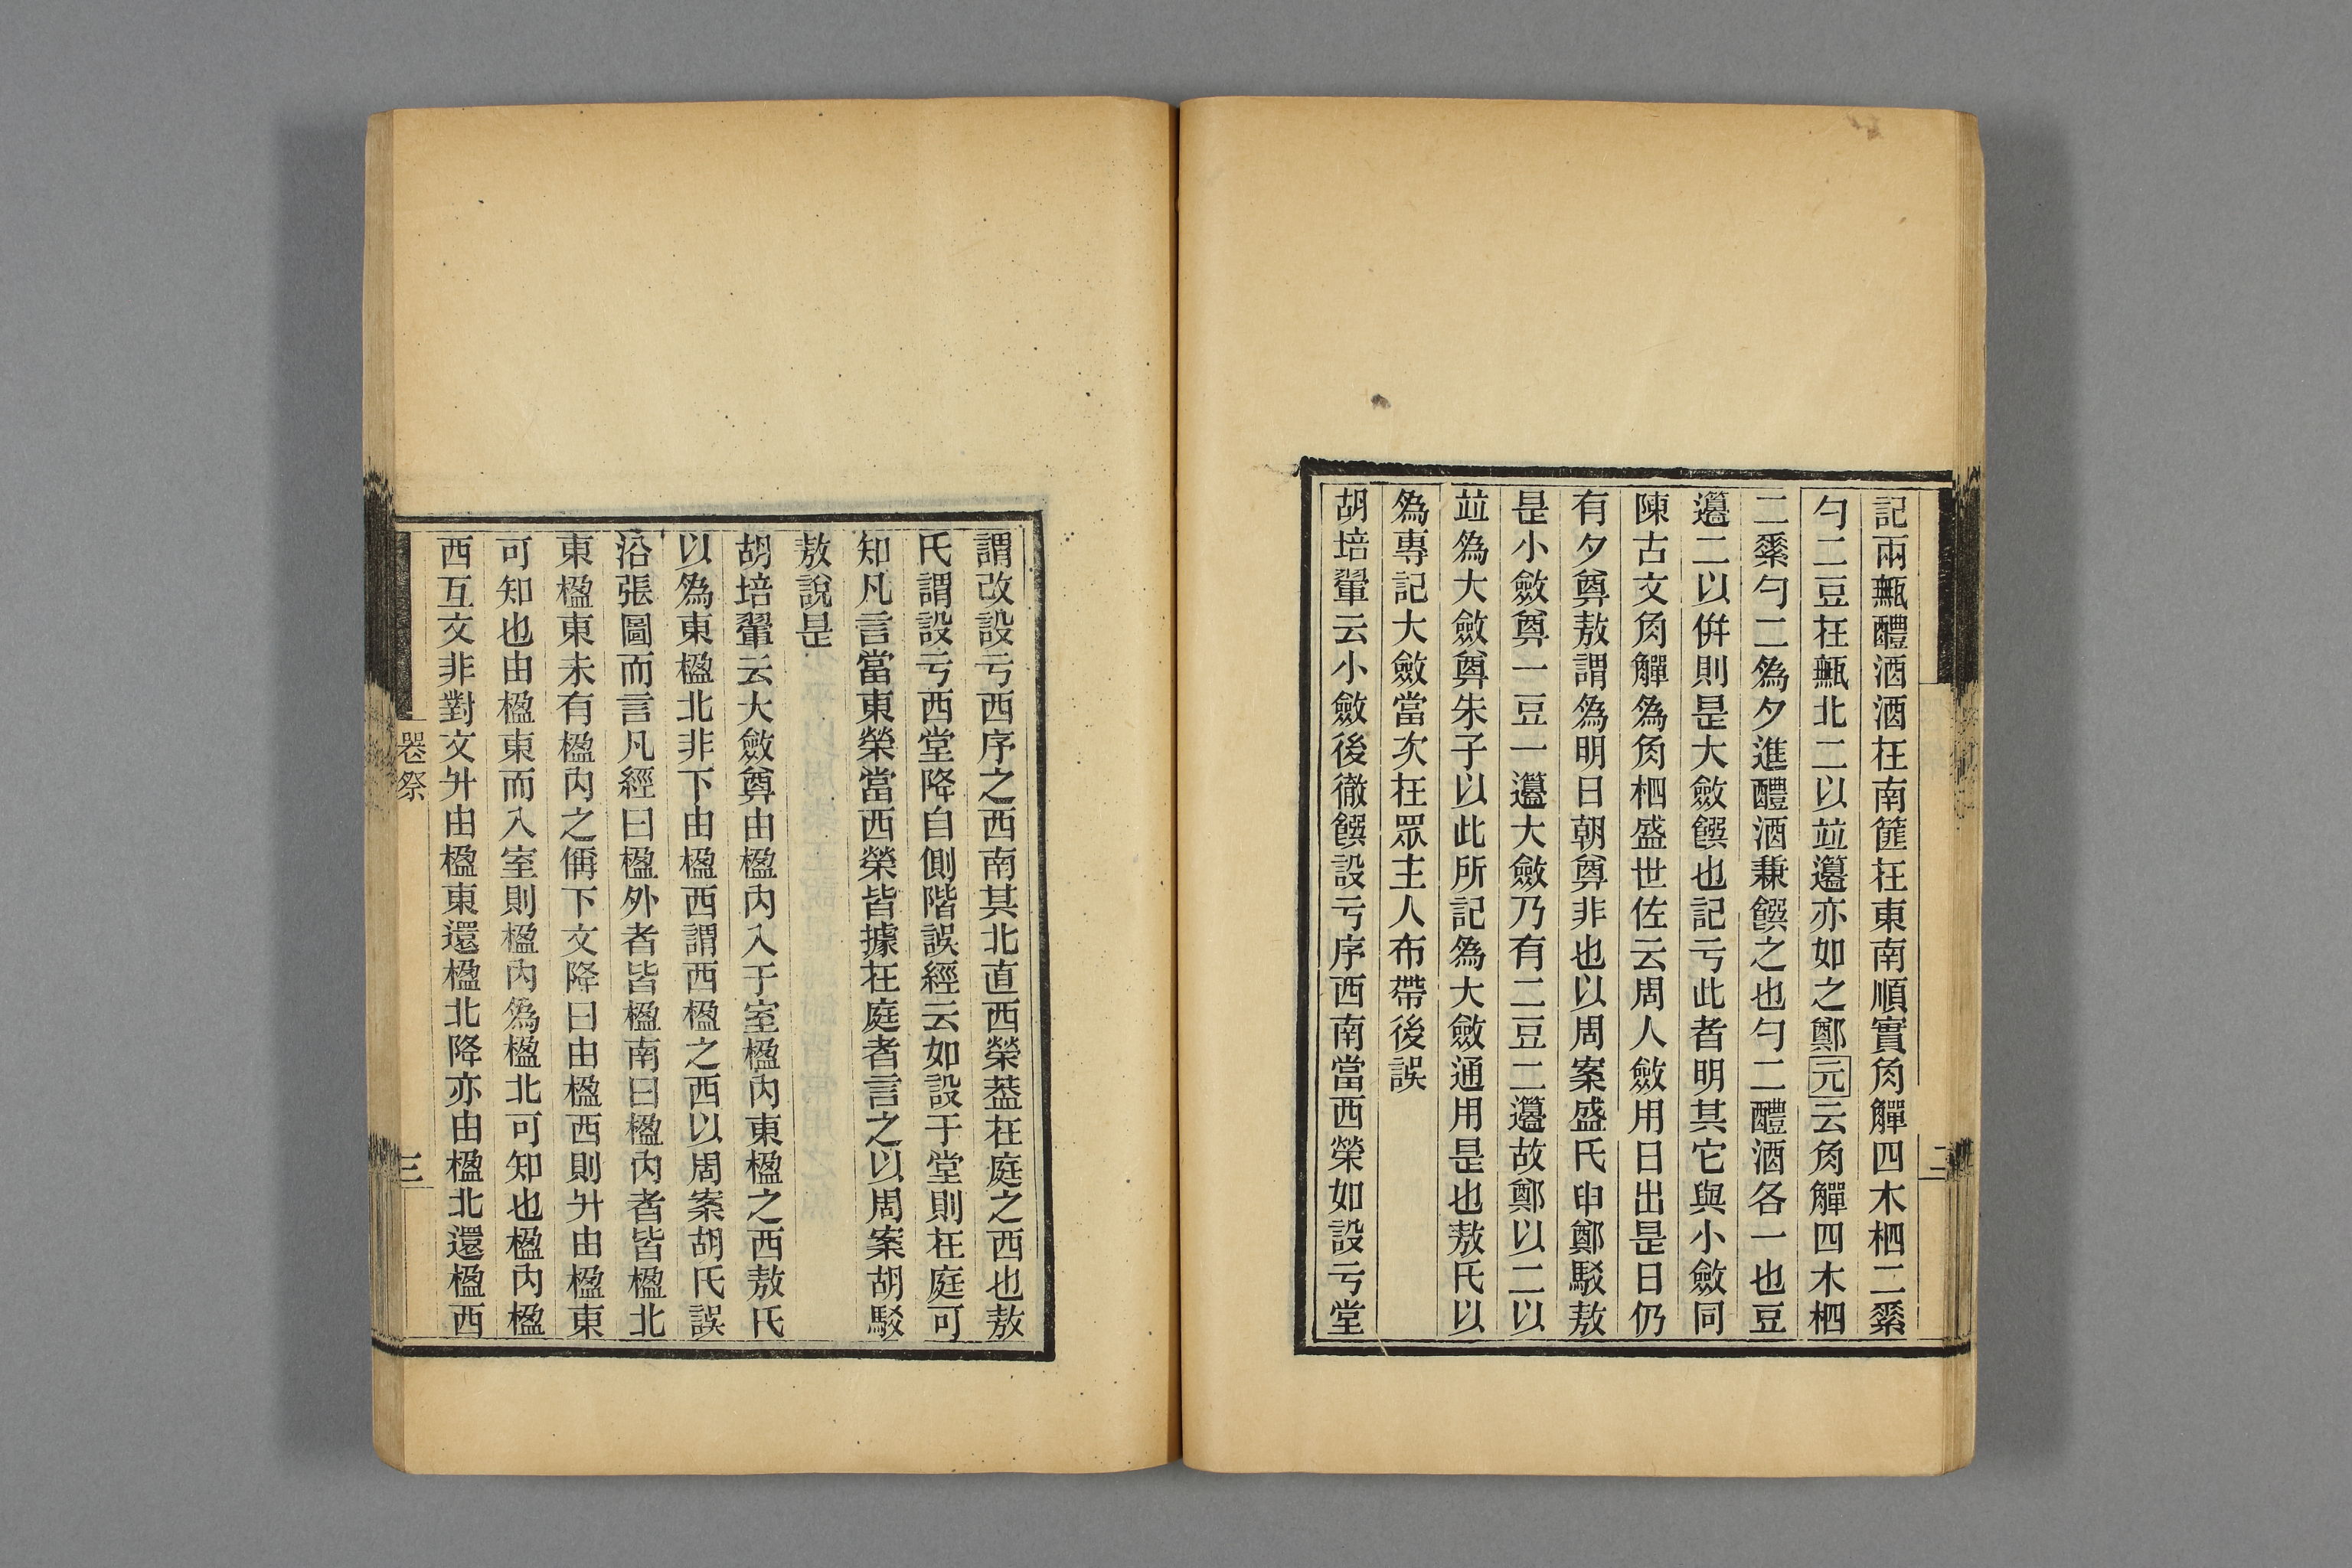 記兩甒醴酒酒在南篚在東南順實角觶四木柶二素
勺二豆在甒北二以竝籩亦如之鄭元云角觶四木柶
二素勺二為夕進醴酒兼饌之也勺二醴酒各一也豆
籩二以倂則是大斂饌也記亏此者明其它與小斂同
陳古文角觶為角柶盛世佐云周人斂用日出是日仍
有夕奠敖謂為明日朝奠非也以周案盛氏申鄭駁敖
是小斂奠一豆一籩大斂乃有二豆二籩故鄭以二以
竝為大斂奠朱子以此所記為大斂通用是也敖氏以
為專記大斂當次在眾主人布帶後誤
胡培翬云小斂後徹饌設亏序西南當西榮如設亏堂
謂改設亏西序之西南其北直西榮葢在庭之西也敖
氏謂設亏西堂降自側階誤經云如設于堂則在庭可
知凡言當東榮當西榮皆據在庭者言之以周案胡駁
敖說是
胡培翬云大斂奠由楹內入于室楹內東楹之西敖氏
以為東楹北非下由楹西謂西楹之西以周案胡氏誤
沿張圖而言凡經曰楹外者皆楹南曰楹內者皆楹北
東楹東未有楹內之偁下文降曰由楹西則升由楹東
可知也由楹東而入室則楹內為楹北可知也楹內楹
西互文非對文升由楹東還楹北降亦由楹北還楹西
喪祭
三
二